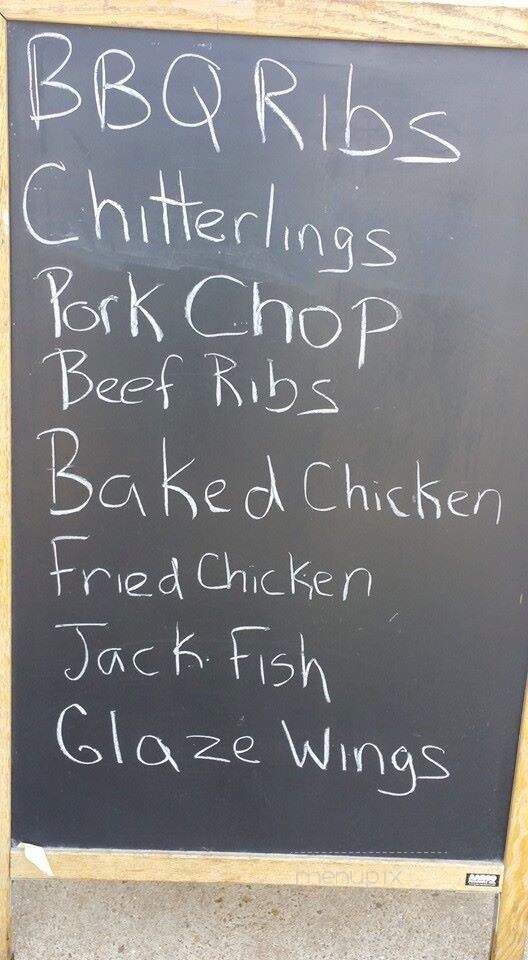 BBQ Ribs
Chitterlings
Pork Chop
Beef Ribs
Baked Chicken
Fried Chicken
Jack Fish
Glaze Wings
menupix